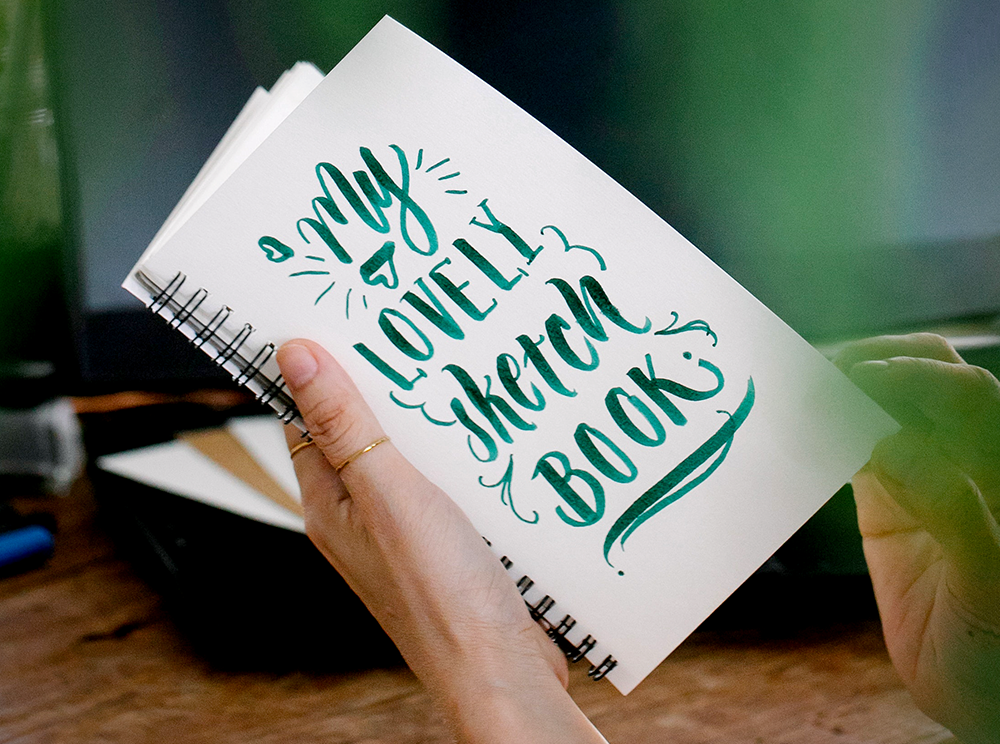 My
LOVELY
sketch
BOOK